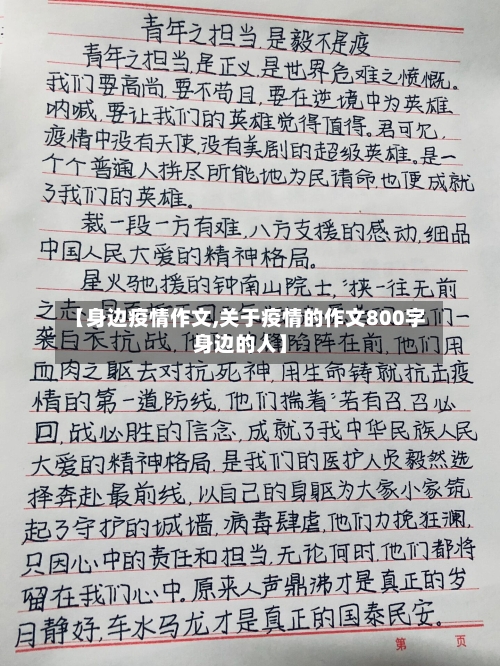 青年之担当,是毅不是疫
青年之担当,是正义,是世界危难之愤慨。
我们要高尚,要不苟且,要在逆境中为英雄
呐喊,要让我们的英雄觉得值得。君可知,
疫情中没有天使,没有美剧的超级英雄。是一
个个普通人拼尽所能地为民请命,也便成就
了我们的英雄。
裁一段一方有难,八方支援的感动,细品
中国人民大爱的精神格局。
星火驰援的钟南山院士,“挟一往无前
之志
们一
【身边疫情作文,关于疫情的作文800字
身边的人】
袭白衣抗战,他
陷阵在前,他们用
血肉之躯去对抗死神,用生命铸就抗击疫
情的第一道防线,他们揣着“若有召,召必
回,战必胜的信念,成就了我中华民族人民
大爱的精神格局,是我们的医护人员毅然选
择奔赴最前线,以自己的身躯为大家小家筑
起了守护的城墙,病毒肆虐,他们力挽狂澜,
只因心中的责任和担当,无论何时他们都将
留在我们心中。原来人声鼎沸才是真正的岁
月静好,车水马龙才是真正的国泰民安。
第 页